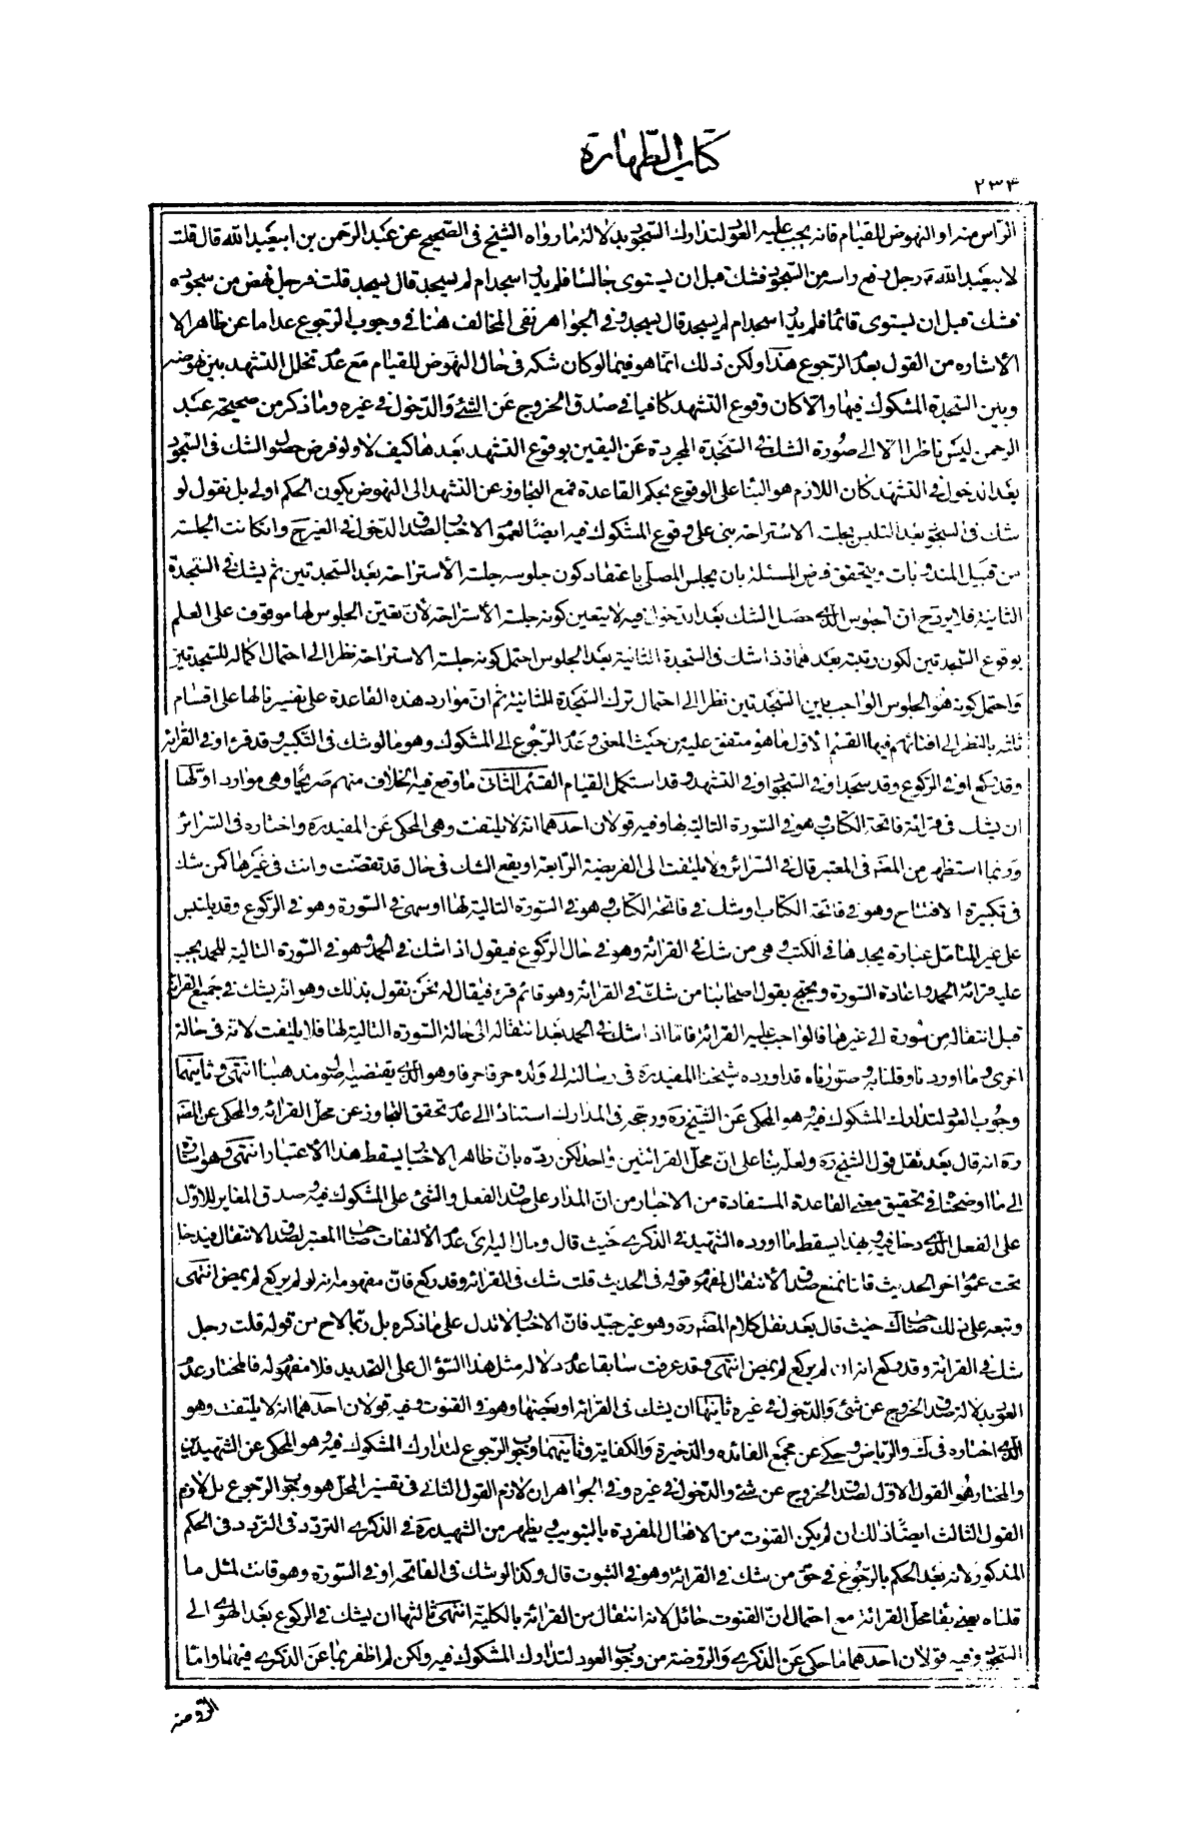 كتاب الطهارة
٢٣٣
الرأس منه او النهوض للقيام فانه يجب عليه العود لتدارك السجود بدلالة ما رواه الشيخ فى الصحيح عن عبد الرحمن بن ابيعبد الله قال قلت
لابيعبد الله ع رجل رفع راسه من السجود فشك قبل ان يستوى جالسا فلم يدر اسجد ام لم يسجد قال يسجد قلت فرجل نهض من سجوده
فشك قبل ان يستوى قائما فلم يدر اسجد ام لم يسجد قال يسجد وفى الجواهر نفى المخالف هنا فى وجوب الرجوع عدا ما عن ظاهر الا
الاشاره من القول بعدم الرجوع هذا ولكن ذلك انما هو فيما لو كان شكه فى حال النهوض للقيام مع عدم تخلل التشهد بين نهوضه
وبين السجدة المشكوك فيها والا كان وقوع التشهد كافيا فى صدق الخروج عن الشئ والدخول فى غيره وما ذكر من صحيحة عبد
الرحمن ليس ناظرا الا الى صورة الشك فى السجدة المجردة عن اليقين بوقوع التشهد بعدها كيف لا ولو فرض حصول الشك فى السجود
بعد الدخول فى التشهد كان اللازم هو البناء على الوقوع بحكم القاعدة فمع التجاوز عن التشهد الى النهوض يكون الحكم اولى بل نقول لو
شك فى السجود بعد التلبس بجلسة الاستراحة بنى على وقوع المشكوك فيه ايضا لعموم الاخبار لصدق الدخول فى الغير ح وان كانت الجلسة
من قبيل المندوبات ويتحقق فرض المسئلة بان يجلس المصلى باعتقاد كون جلوسه جلسة الاستراحة بعد السجدتين ثم يشك فى السجدة
الثانية فلا يرد ح ان الجلوس الذى حصل الشك بعد الدخول فيه لا يتعين كونه جلسة الاستراحة لان تعين الجلوس لها موقوف على العلم
بوقوع السجدتين لكون رتبته بعدهما فاذا شك فى السجدة الثانية بعد الجلوس احتمل كونه جلسة الاستراحة نظرا الى احتمال اكماله للسجدتين
واحتمل كونه هو الجلوس الواجب بين السجدتين نظرا الى احتمال ترك السجدة الثانية ثم ان موارد هذه القاعدة على تفسيرنا لها على اقسام
ثلثه بالنظر الى افتائهم فيها القسم الاول ما هو متفق عليه من حيث المعنى وعدم الرجوع الى المشكوك وهو ما لو شك فى التكبير وقد قرء او فى القرائة
وقد ركع او فى الركوع وقد سجد او فى السجود او فى التشهد وقد استكمل القيام القسم الثانى ما وقع فيه الخلاف منهم صريحا وهى موارد اولها
ان يشك فى قرائة فاتحة الكتاب وهو فى السورة التالية لها وفيه قولان احدهما انه لا يلتفت وهى المحكى عن المفيد ره واختاره فى السرائر
وربما استظهر من المصنف فى المعتبر قال فى السرائر ولا يلتفت الى الفريضة الرابعة او يقع الشك فى حال قد تقضت وانت فى غيرها كمن شك
فى تكبيرة الافتتاح وهو فى فاتحة الكتاب او شك فى فاتحة الكتاب وهو فى السورة التالية لها او سهى فى السورة وهو فى الركوع وقد يلتبس
على غير المتامل عبارة يجدها فى الكتب وهى من شك فى القرائة وهو فى حال الركوع فيقول اذا شك فى الحمد وهو فى السورة التالية للحمد يجب
عليه قرائة الحمد واعادة السورة ويحتج بقول اصحابنا من شك فى القرائة وهو قائم قرء فيقال له نحن نقول بذلك وهو انه يشك فى جميع القرائة
قبل انتقاله من سورة الى غيرها فالواجب عليه القرائة فاما اذا شك فى الحمد بعد انتقاله الى حالة السورة التالية لها فلا يلتفت لانه فى حالة
اخرى وما اوردناه وقلنا به وصورناه قد اورده شيخنا المفيد ره فى رسالته الى ولده حرفا حرفا وهو الذى يقتضيه اصول مذهبنا انتهى وثانيهما
وجوب العود لتدارك المشكوك فيه وهو المحكى عن الشيخ ره ورجحه فى المدارك استنادا الى عدم تحقق التجاوز عن محل القرائة والمحكى عن المصنف
ره انه قال بعد نقل قول الشيخ ره ولعله بناء على ان محل القرائتين واحد لكن رده بان ظاهر الاخبار يسقط هذا الاعتبار انتهى وهو اشارة
الى ما اوضحنا فى تحقيق معنى القاعدة المستفادة من الاخبار من ان المدار على صدق الفعل والشئ على المشكوك فيه وصدق المغاير للاول
على الفعل الذى دخل فيه وبهذا يسقط ما اورده الشهيد فى الذكرى حيث قال ومال اليه اى عدم الالتفات صاحب المعتبر لصدق الانتقال فيدخل
تحت عموم اخر الحديث قلنا نمنع صدق الانتقال لمفهوم قوله فى الحديث قلت شك فى القرائة وقد ركع فان مفهومه انه لو لم يركع لم يمض انتهى
وتبعه على ذلك صاحب ك حيث قال بعد نقل كلام المصنف ره وهو غير جيد فان الاخبار لا تدل على ما ذكره بل ربما لاح من قوله قلت رجل
شك فى القرائة وقد ركع انه ان لم يركع لم يمض انتهى وقد عرفت سابقا عدم دلالة مثل هذا السؤال على التحديد فلا مفهوم له فالمختار عدم
العود بدلالة صدق الخروج عن شئ والدخول فى غيره ثانيها ان يشك فى القرائة او بعضها وهو فى القنوت وفيه قولان احدهما انه لا يلتفت وهو
الذى اختاره فى ك والرياض وحكى عن مجمع الفائده والذخيرة والكفاية وثانيهما وجوب الرجوع لتدارك المشكوك فيه وهو المحكى عن الشهيدين
والمختار هو القول الاول لصدق الخروج عن شئ والدخول فى غيره وفى الجواهر ان لازم القول الثانى فى تفسير المحل هو وجوب الرجوع بل لازم
القول الثالث ايضا ذلك ان لم يكن القنوت من الافعال المفردة بالتبويب ويظهر من الشهيد ره فى الذكرى التردد فى التردد فى الحكم
المذكور لانه بعد الحكم بالرجوع فى حق من شك فى القرائة وهو فى القنوت قال وكذا لو شك فى الفاتحة او فى السورة وهو قانت لمثل ما
قلناه يعنى بقاء محل القرائة مع احتمال ان القنوت حائل لانه انتقال من القرائة بالكلية انتهى ثالثها ان يشك فى الركوع بعد الهوى الى
السجود وفيه قولان احدهما ما حكى عن الذكرى والروضة من وجوب العود لتدارك المشكوك فيه ولكن لم اظفر بما عن الذكرى فيها واما
الروضة